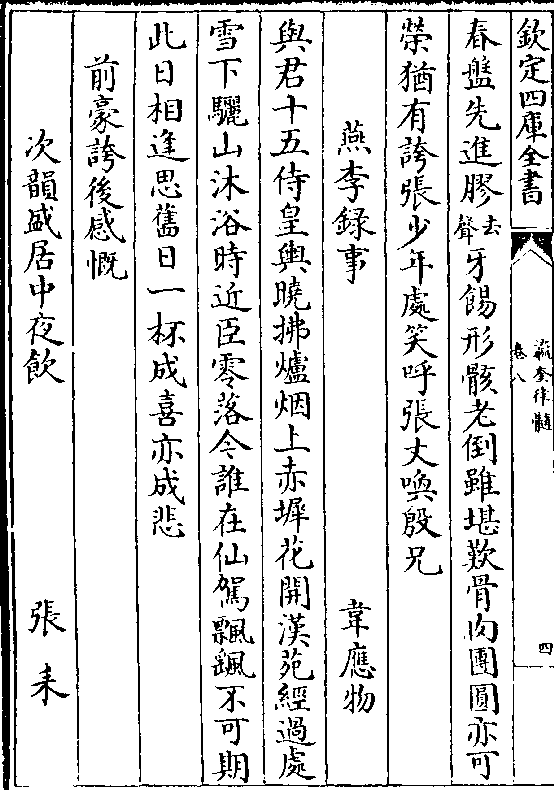 欽定四庫全書
瀛奎律髓
卷八
四
春盤先進膠去聲牙餳形骸老倒雖堪歎骨肉團圓亦可
榮猶有誇張少年處笑呼張丈喚殷兄
燕李錄事 韋應物
與君十五侍皇輿曉拂爐烟上赤墀花開漢苑經過處
雪下驪山沐浴時近臣零落今誰在仙駕飄颻不可期
此日相逢思舊日一杯成喜亦成悲
前豪誇後感慨
次韻盛居中夜飲 張耒